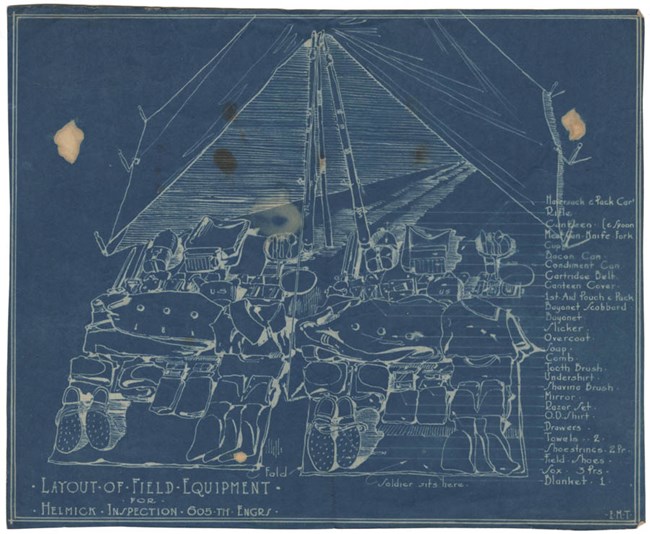 Haversack & Pack Car
Rifle
Canteen (& Spoon
Meat Can - Knife Fork
Cup
Bacon Can
Condiment Can
Cartridge Belt
Canteen Cover
1st Aid Pouch & Pack
Bayonet Scabbard
Bayonet
Slicker
Overcoat
Soap
Comb
Tooth Brush
Undershirt
Shaving Brush
Mirror
Razor Set
O.D. Shirt
Drawers
Towels - 2
Shoestrings 2 Pr.
Field Shoes
Sox 3 Prs.
Blanket 1
Fold
Soldier sits here
· LAYOUT · OF · FIELD · EQUIPMENT ·
· FOR ·
· HELMICK · INSPECTION · 605-TH · ENGRS ·
· E · M · T ·